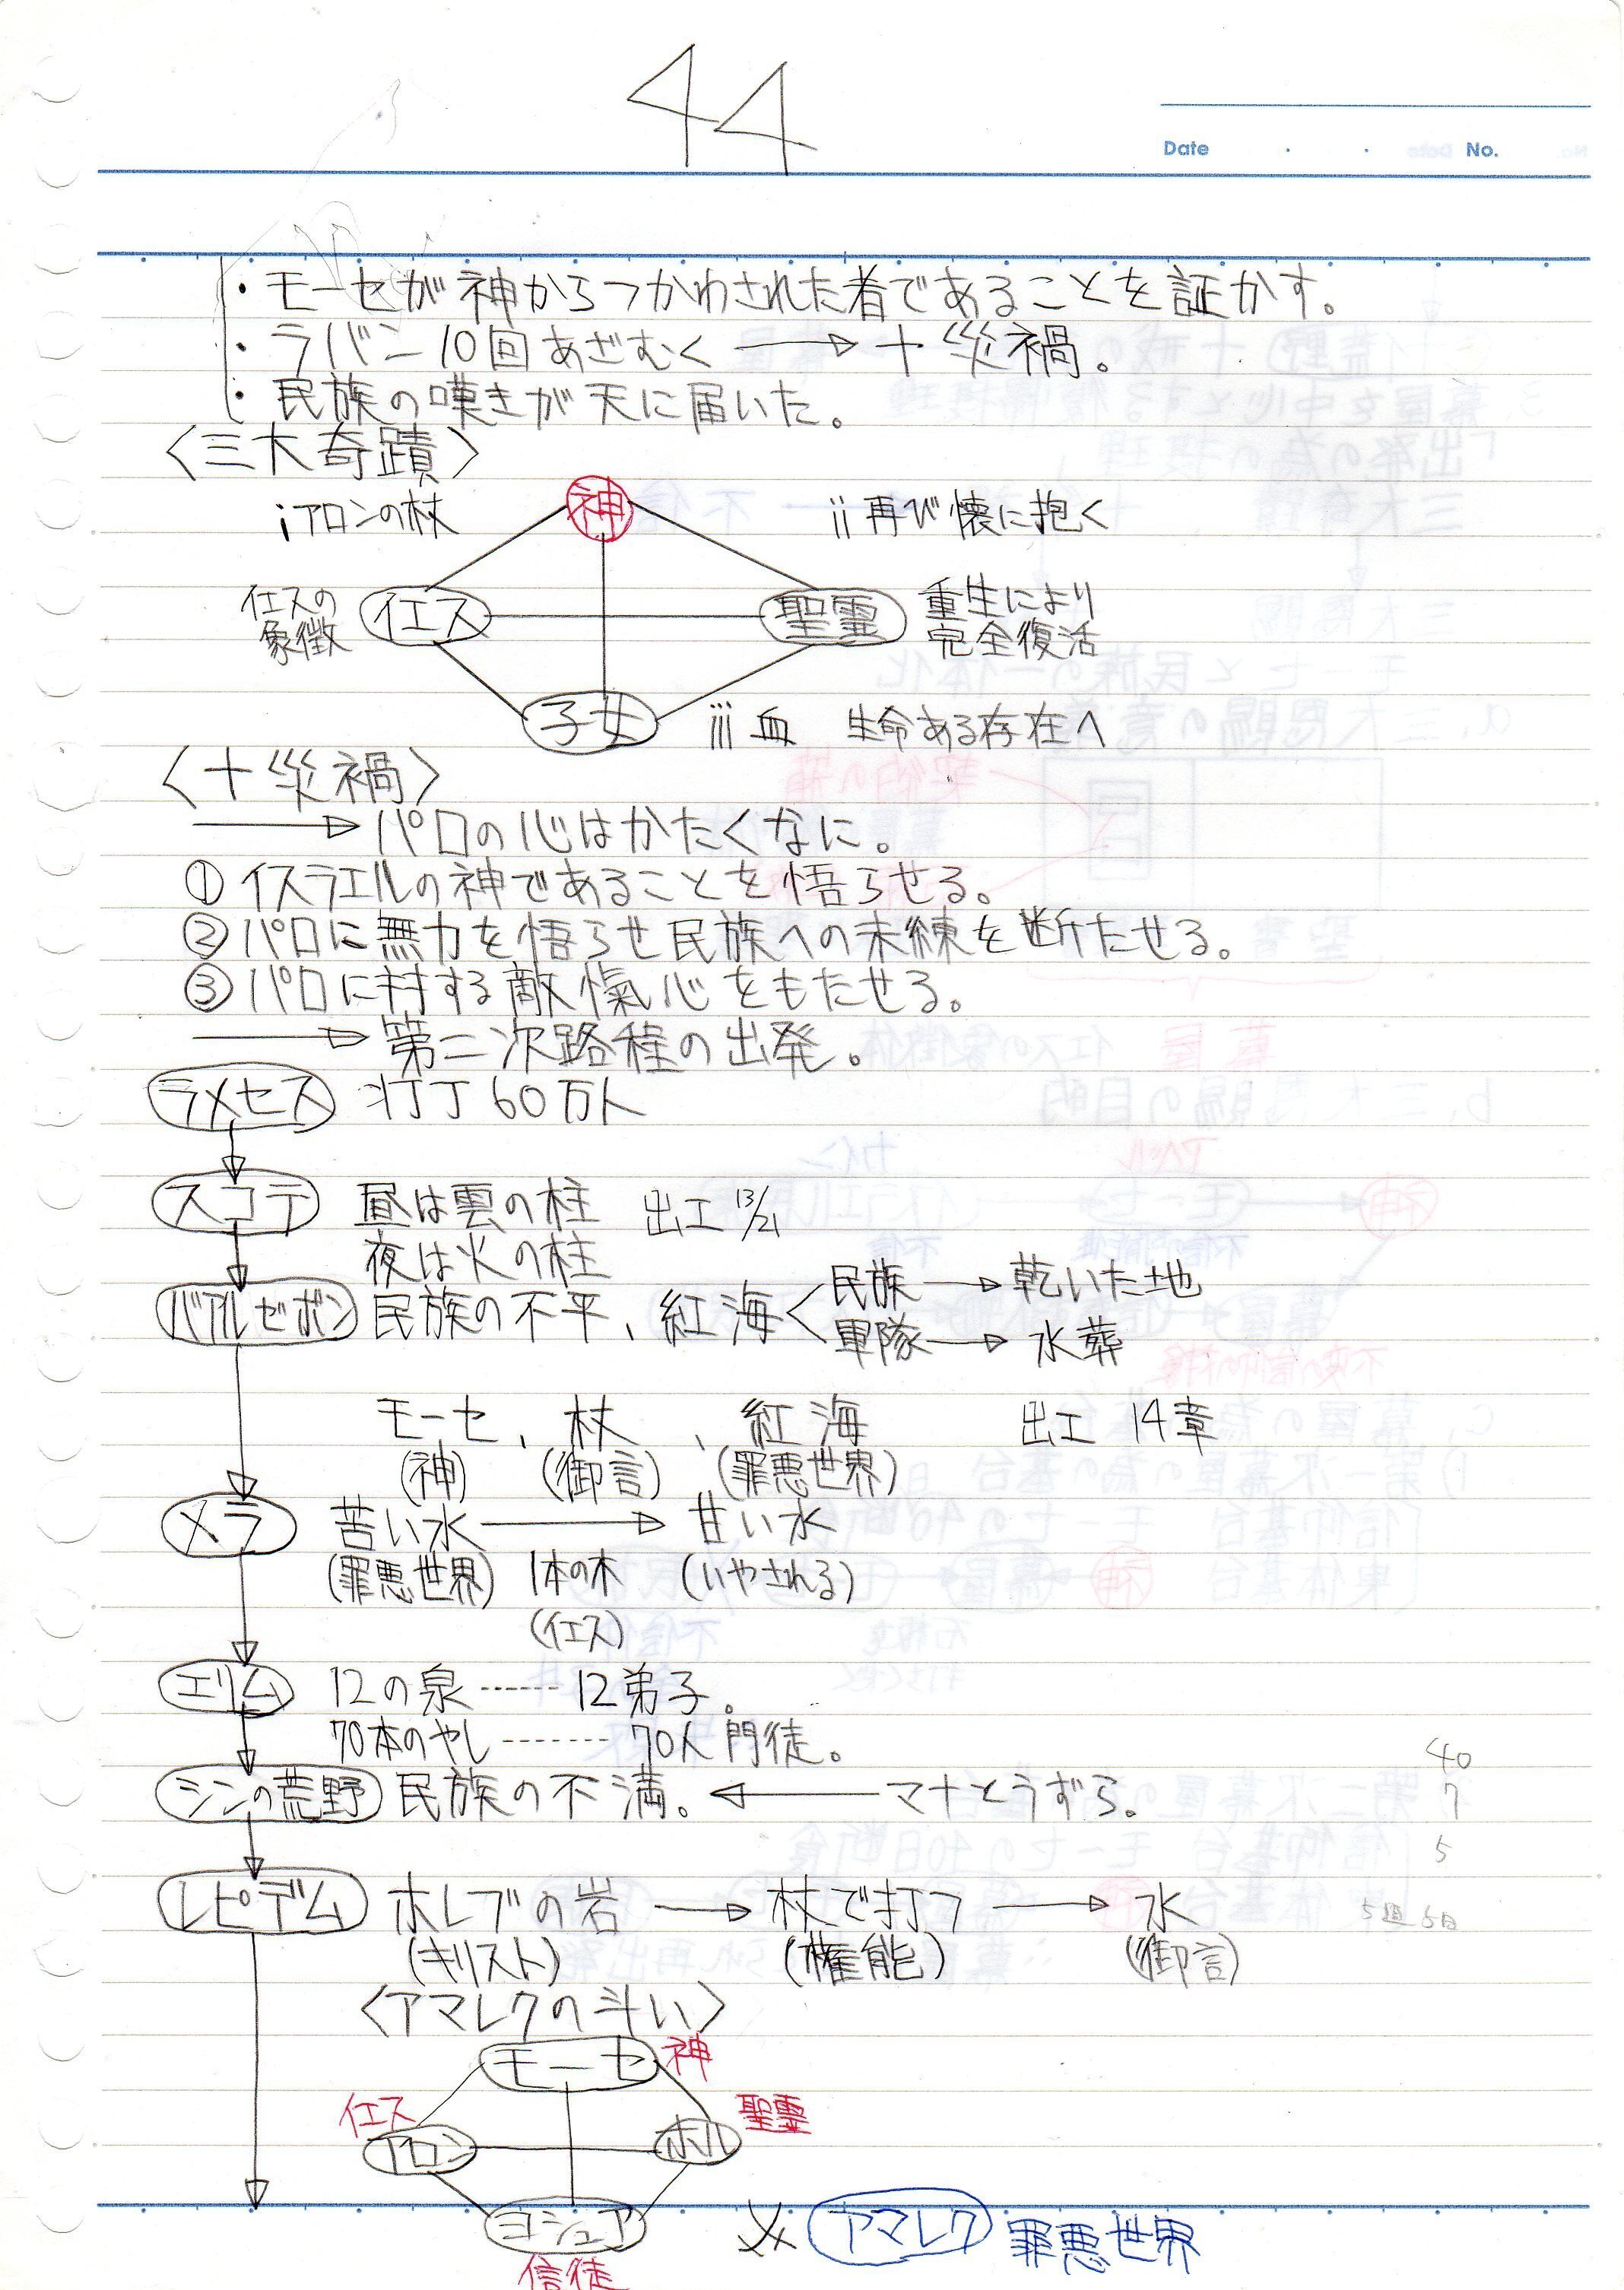 44
Date . . No.
・モーセが神からつかわされた者であることを証かす。
・ラバン10回あざむく → 十災禍。
・民族の嘆きが天に届いた。
〈三大奇蹟〉
i アロンの杖 神 ii 再び懐に抱く
イエスの象徴 イエス 聖霊 重生により完全復活
子女 iii 血 生命ある存在へ
〈十災禍〉
→ パロの心はかたくなに。
① イスラエルの神であることを悟らせる。
② パロに無力を悟らせ民族への未練を断たせる。
③ パロに対する敵愾心をもたせる。
→ 第二次路程の出発。
ラメセス 壮丁60万人
スコテ 昼は雲の柱 出エ 13/21
夜は火の柱
バアルゼポン 民族の不平、紅海 < 民族 → 乾いた地
軍隊 → 水葬
モーセ、杖、紅海 出エ 14章
(神) (御言) (罪悪世界)
メラ 苦い水 → 甘い水
(罪悪世界) 1本の木 (いやされる)
(イエス)
エリム 12の泉 ------ 12弟子。
70本のやし ------- 70人門徒。
40
シンの荒野 民族の不満。 ← マナとうずら。 7
5
レピデム ホレブの岩 → 杖で打つ → 水
(キリスト) (権能) (御言)
〈アマレクの斗い〉
モーセ 神
イエス 聖霊
アロン ホル
ヨシュア アマレク 罪悪世界
信徒